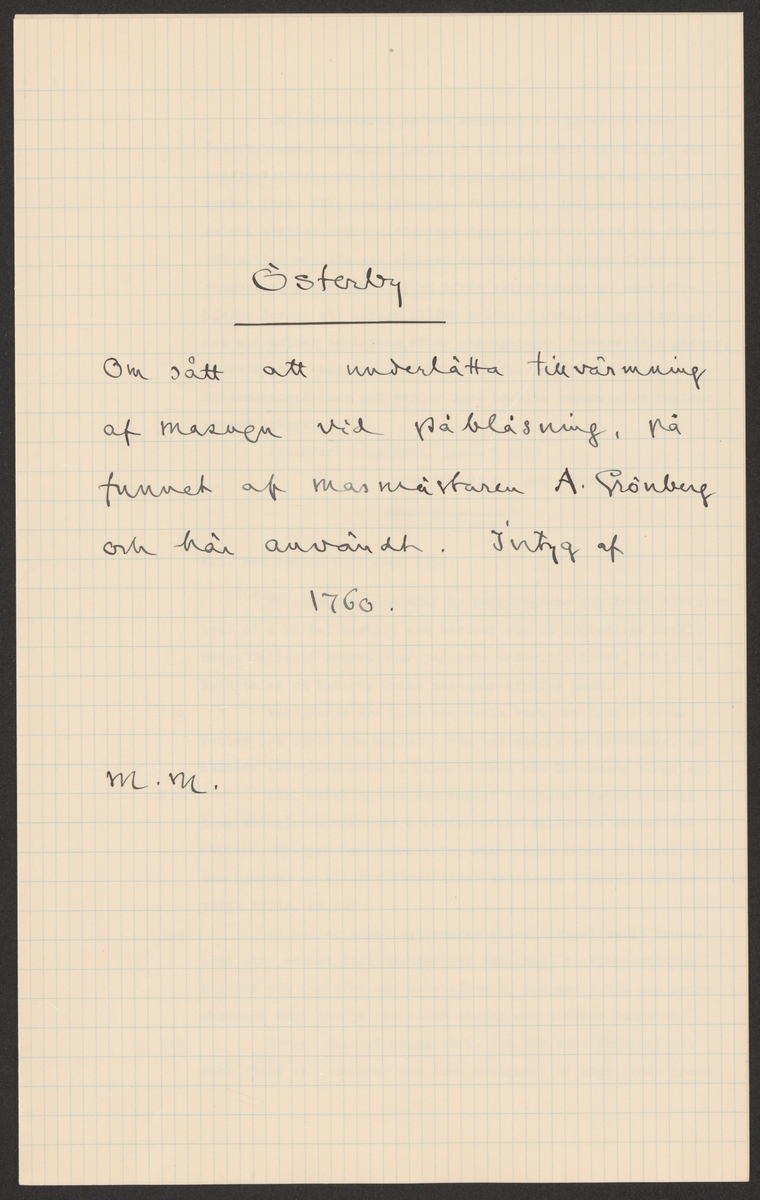 Österby
Om sått att underlätta tillvärmning
af masugn vid påblåsning, på
funnet af masmästaren A. Grönberg
och här användt. Intyg af
1760.
M. M.